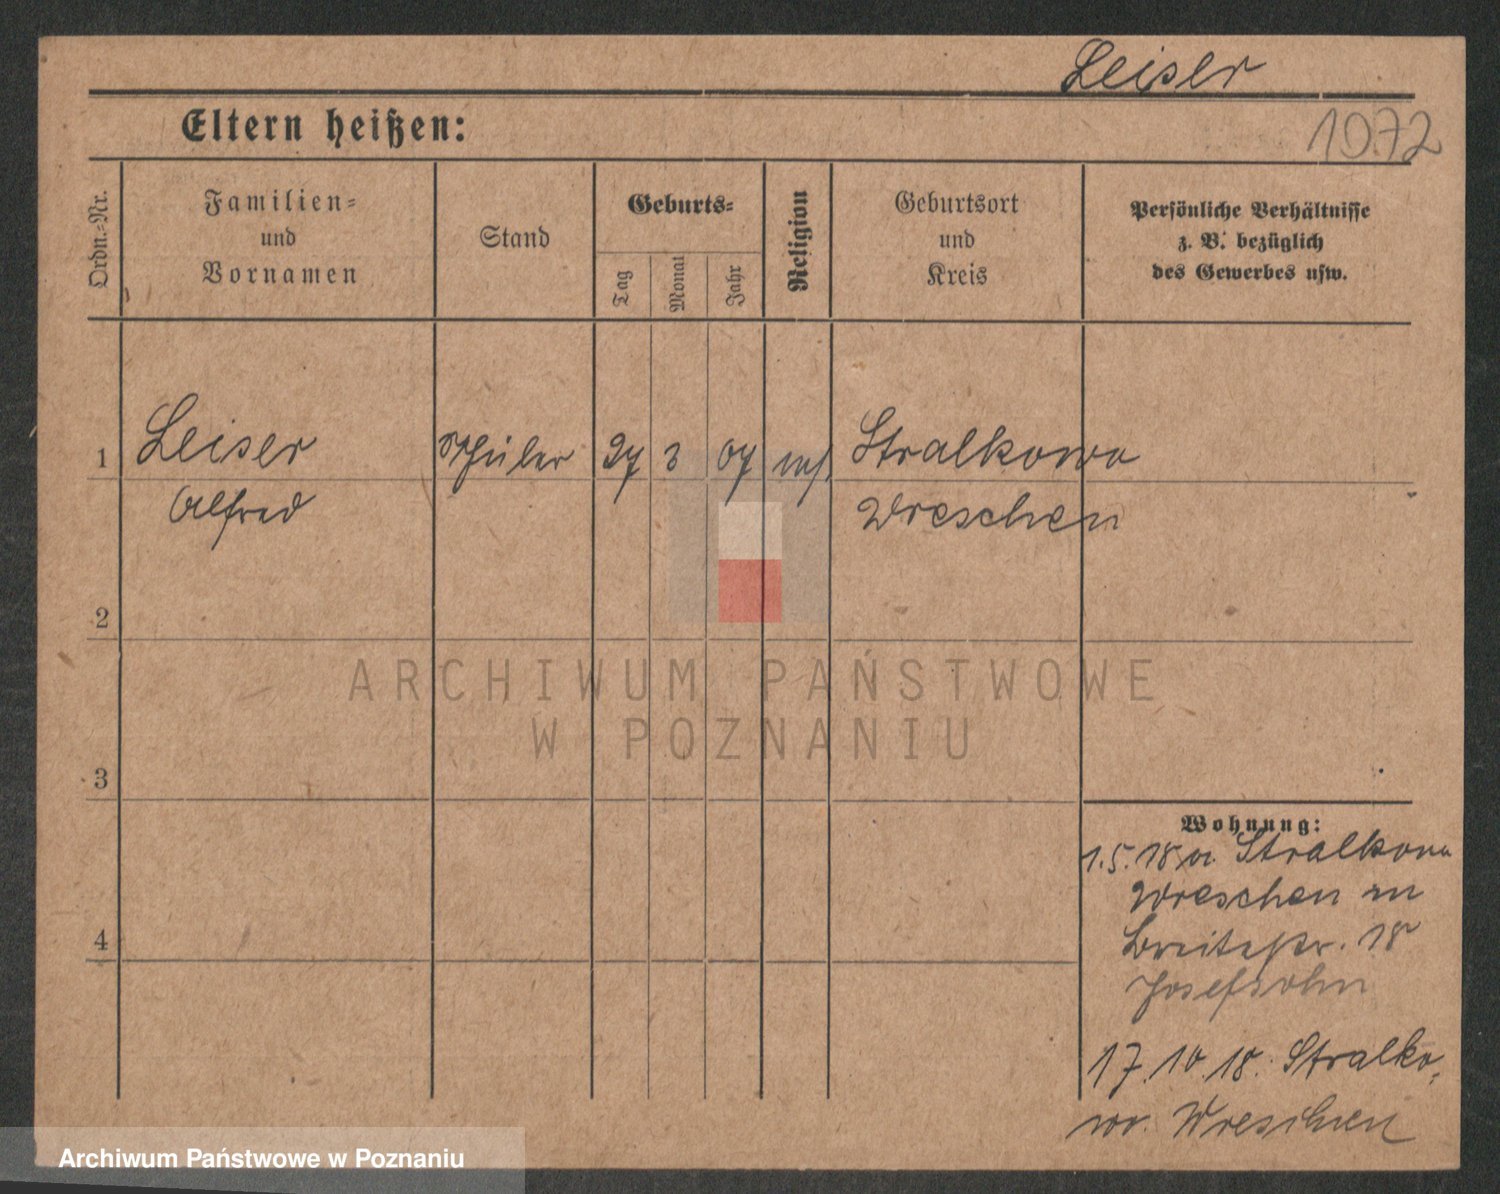 Leiser
Eltern heißen:
1072
Ordn.-Nr.
Familien-
und
Vornamen
Stand
Geburts-
Tag
Monat
Jahr
Religion
Geburtsort
und
Kreis
Persönliche Verhältnisse
z. B. bezüglich
des Gewerbes usw.
1 Leiser Schüler 27 3 07 mos. Stralkowo
Alfred Wreschen
2
3
4
Wohnung:
1.5.18 a. Stralkowo
Wreschen
Breitestr. 18
Josefsohn
17.10.18. Stralko-
wo. Wreschen
ARCHIWUM PAŃSTWOWE
W POZNANIU
Archiwum Państwowe w Poznaniu